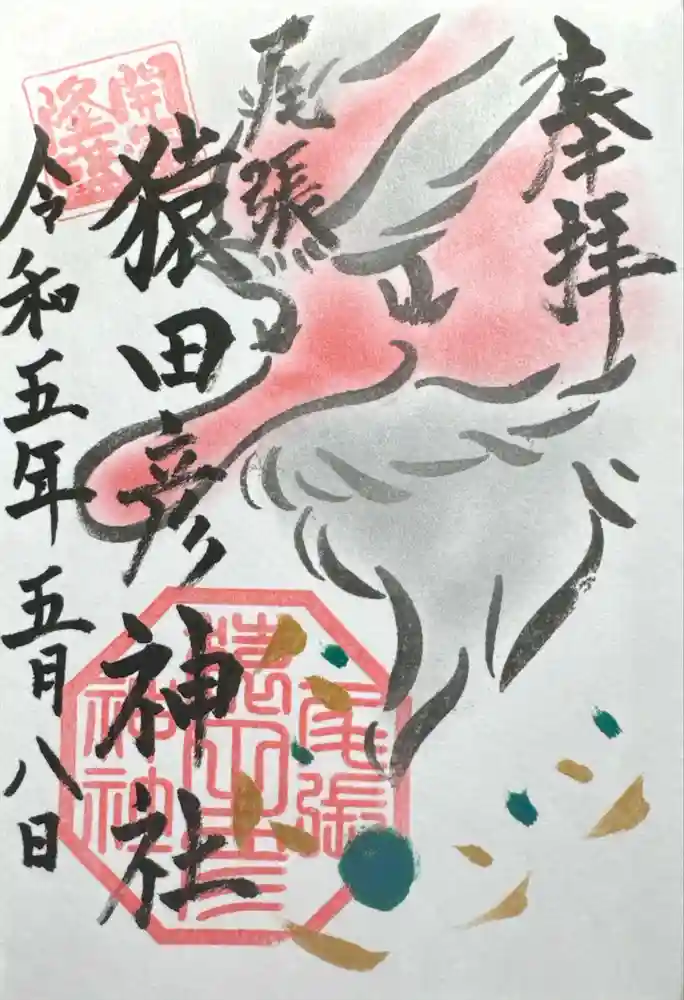 奉拝
尾張
猿田彦神社
令和五年五月八日
尾張
猿田彦
神社